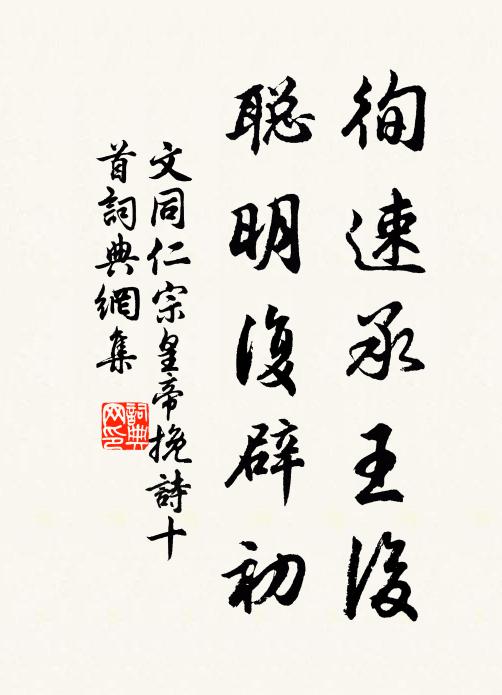 徇速承王後
聰明復辟初
文同仁宗皇帝挽詩十
首詞典網集
詞典网印